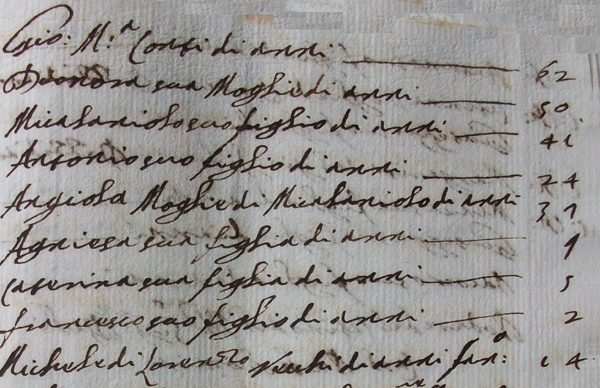 Gio: M.a Conti di anni 62
Dionora sua Moglie di anni 50
Micalaniolo suo figlio di anni 41
Antonio suo figlio di anni 24
Angiola Moglie di Micalaniolo di anni 31
Agniesa sua figlia di anni 9
Caterina sua figlia di anni 5
francesco suo figlio di anni 2
Michele di Lorenzo di anni 14